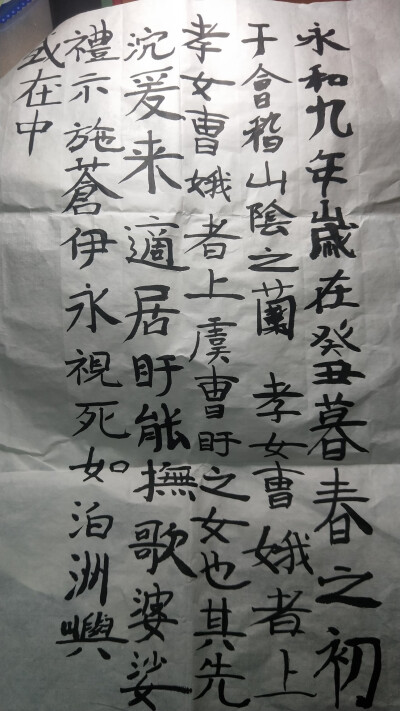 永和九年歲在癸丑暮春之初
于會稽山陰之蘭孝女曹娥者上
孝女曹娥者上虞曹盱之女也其先
沉爰来適居盱能撫歌婆娑
禮示施蒼伊永視死如泊洲嶼
或在中